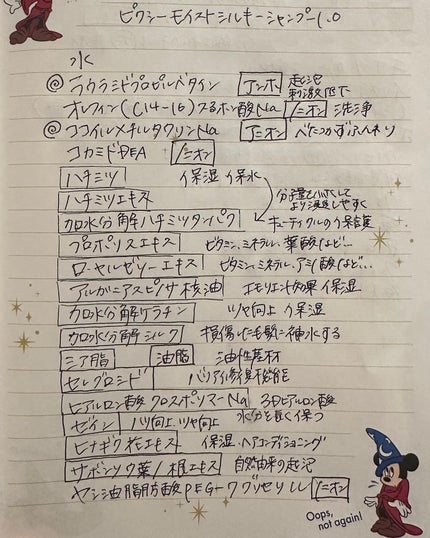 ピクシーモイストシルキーシャンプー1.0
水
@ ラウラミドプロピルベタイン アンホ 起泡 刺激低下
オレフィン(C14-16)スルホン酸Na アニオン 洗浄
@ ココイルメチルタウリンNa アニオン べたつかずふんわり
コカミドDEA ノニオン
ハチミツ 保湿 保水
ハチミツエキス 分子量を小さくして より浸透しやすく
加水分解ハチミツタンパク キューティクルの保護
プロポリスエキス ビタミン、ミネラル、葉酸など…
ローヤルゼリーエキス ビタミン、ミネラル、アミノ酸など…
アルガニアスピノサ核油 エモリエント効果 保湿
加水分解ケラチン ツヤ向上 保湿
加水分解シルク 損傷した毛髪に補水する
ミツロウ
油脂 油性基材
セレブロシド バリア修復機能
ヒアルロン酸クロスポリマーNa 3Dヒアルロン酸
ゼイン ハリ向上、ツヤ向上 水分を長く保つ
ヒナギク花エキス 保湿、ヘアコンディショニング
サボンソウ葉/根エキス 自然由来の起泡
ヤシ油脂肪酸PEG-7グリセリル ノニオン
Oops,
not again!